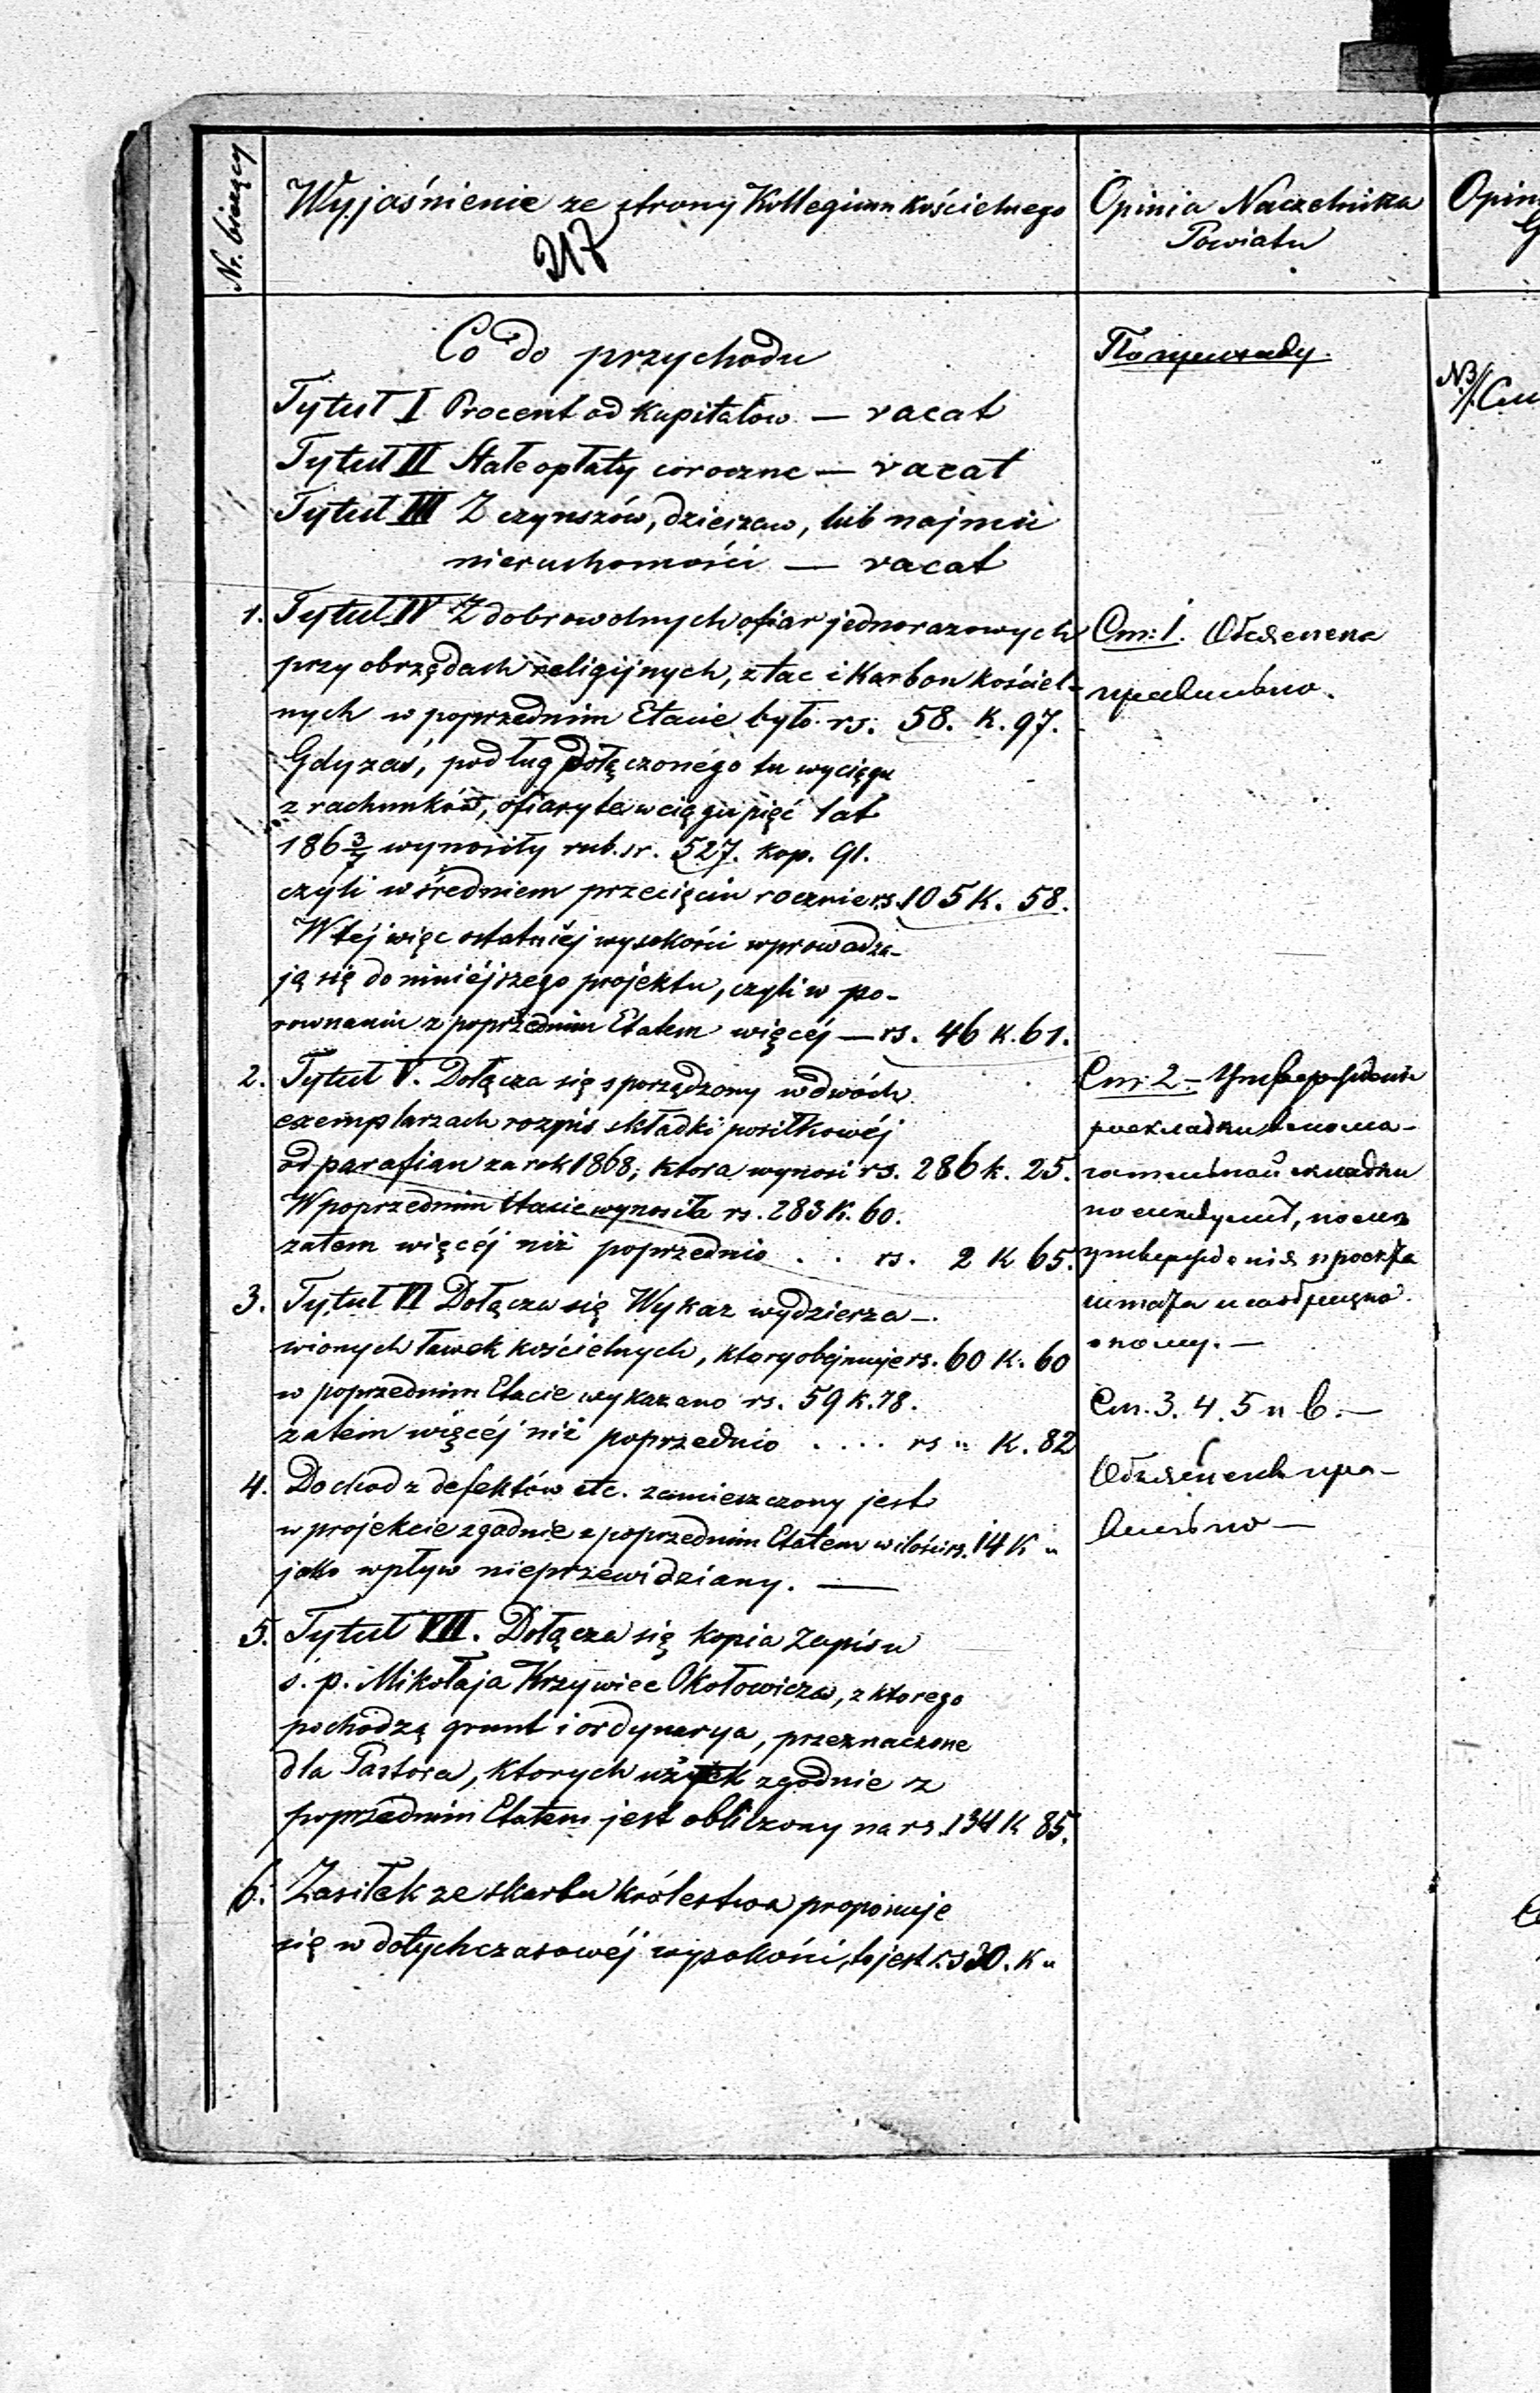 Nr. bieżący
Wyjaśnienie ze strony Kollegium kościelnego
217
Opinia Naczelnika
Powiatu
Opin
Co do przychodu
Tytuł I Procent od kapitałow — vacat
Tytuł II Stałe opłaty coroczne — vacat
Tytuł III Z czynszów, dzierzaw, lub najmu
nieruchomości — vacat
1. Tytuł IV Z dobrowolnych ofiar jednorazowych
przy obrzędach religijnych, z tac i karbon kościel-
nych w poprzednim Etacie było rs. 58. K. 97.
Gdy zaś, podług dołączonégo tu wyciągu
z rachunków, ofiary te w ciągu pięć lat
186 3/7 wynosiły rub. sr. 527. kop. 91.
czyli w średniem przecięciu rocznie rs. 105 K. 58.
W téj więc ostatniéj wysokości wprowadza-
ją się do niniéjszego projektu, czyli w po-
rownaniu z poprzednim Etatem więcéj — rs. 46 K. 61.
2. Tytuł V. Dołącza się sporządzony w dwóch
exemplarzach rozpis składki posiłkowéj
od parafian za rok 1868, ktora wynosi rs. 286 k. 25.
W poprzednim Etacie wynosiła rs. 283 K. 60.
zatem więcéj niż poprzednio . . rs. 2 K 65.
3. Tytuł VI Dołącza się Wykaz wydzierza-
wionych ławek kościelnych, ktory obejmuje rs. 60 K. 60
w poprzednim Etacie wykazano rs. 59 K. 78.
zatem więcéj niż poprzednio . . . . rs " K. 82
4. Dochod z defektów etc. zamieszczony jest
w projekcie zgodnie z poprzednim Etatem w ilości rs. 14 K "
jako wpływ nieprzewidziany. —
5. Tytuł VII. Dołącza się kopia Zapisu
ś. p. Mikołaja Krzywiec Okołowicza, z ktorego
pochodzą grunt i ordynarya, przeznaczone
dla Pastora, ktorych użytek zgodnie z
poprzednim Etatem jest obliczony na rs. 134 K 85.
6. Zasiłek ze skarbu królestwa proponuje
się w dotychczasowéj wysokości, to jest rs 30. K "
По приходу.
Ст: 1. Объяснена
правильно.
Ст: 2 - Утверждение
раскладки вспома-
гательной складки
по
утверждения проекта
штата
оному. —
Ст. 3. 4. 5 и 6. —
Объяснены пра-
вильно —
NB/